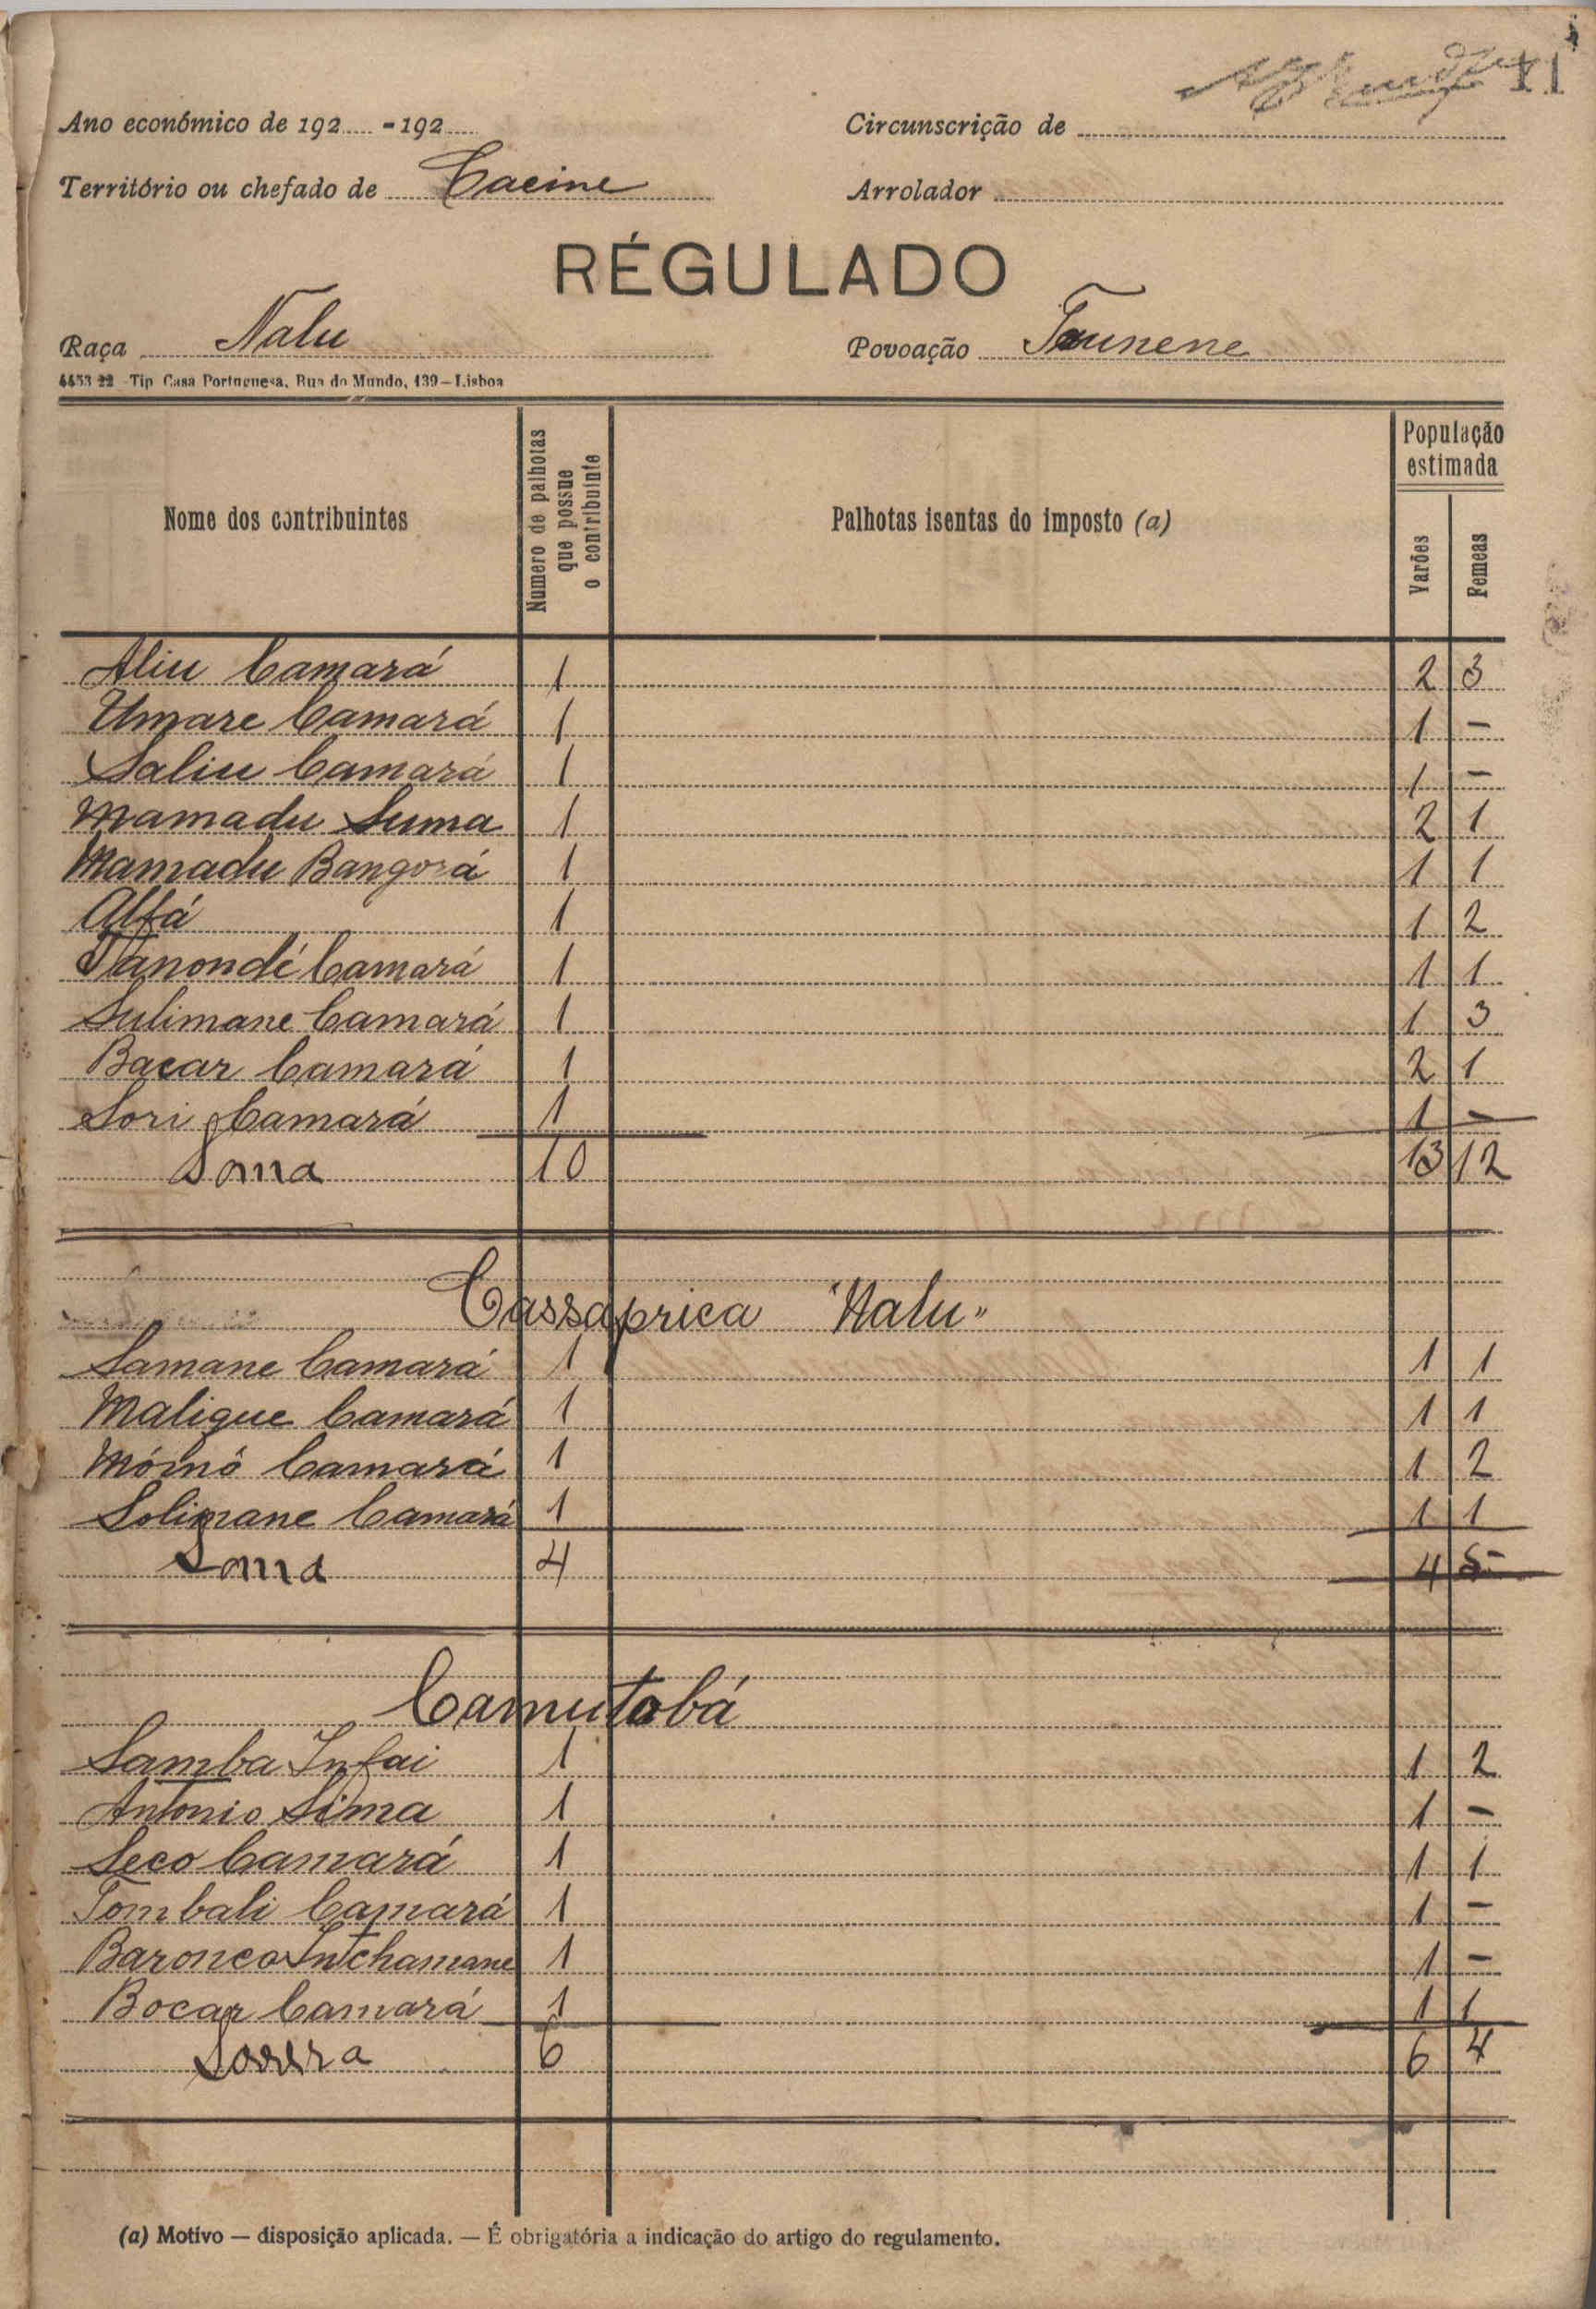 11
Ano económico de 192..... - 192..... Circunscrição de
Território ou chefado de Cacine Arrolador
RÉGULADO
Raça Nalu Povoação Tounene
4453 22 - Tip Casa Portuguesa, Rua do Mundo, 139 – Lisboa
Nome dos contribuintes Numero de palhotas que possue o contribuinte Palhotas isentas do imposto (a) População estimada Varões Femeas
Aliu Camará 1 2 3
Umare Camará 1 1 -
Saliu Camará 1 1 -
Mamadu Suma 1 2 1
Mamadu Bangorá 1 1 1
Alfá 1 1 2
Vanondé Camará 1 1 1
Sulimane Camará 1 1 3
Bacar Camará 1 2 1
Sori Camará 1 1 -
Soma 10 13 12
Cassaprica "Nalu"
Samane Camará 1 1 1
Malique Camará 1 1 1
Mómó Camará 1 1 2
Solimane Camará 1 1 1
Soma 4 4 5
Camutobá
Samba Infai 1 1 2
Antonio Sima 1 1 -
Seco Camará 1 1 1
Tombali Camará 1 1 -
Baronco Intchamane 1 1 -
Bocar Camará 1 1 1
Soma 6 6 4
(a) Motivo — disposição aplicada. — É obrigatória a indicação do artigo do regulamento.